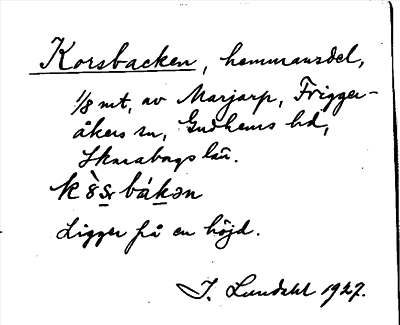 Korsbacken, hemmansdel,
1/8 mt, av Marjarp, Frigger-
åkers sn, Gudhems hd,
Skaraborgs län.
kòs̠bák̠ən
Ligger på en höjd.
I. Lundahl 1927.